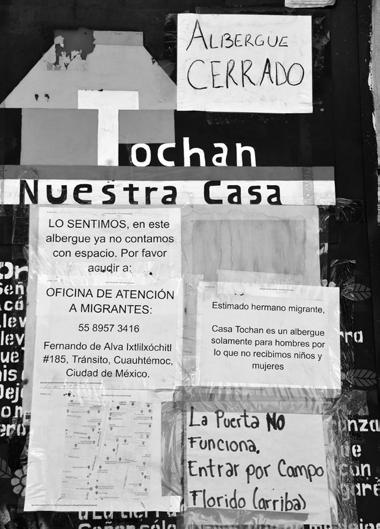 ALBERGUE
CERRADO
Tochan
Nuestra Casa
LO SENTIMOS, en este
albergue ya no contamos
con espacio. Por favor
acudir a:
OFICINA DE ATENCIÓN
A MIGRANTES:
55 8957 3416
Fernando de Alva Ixtlilxóchitl
#185, Tránsito, Cuauhtémoc,
Ciudad de México.
Estimado hermano migrante,
Casa Tochan es un albergue
solamente para hombres por
lo que no recibimos niños y
mujeres
La Puerta NO
Funciona,
Entrar por Campo
Florido (arriba)